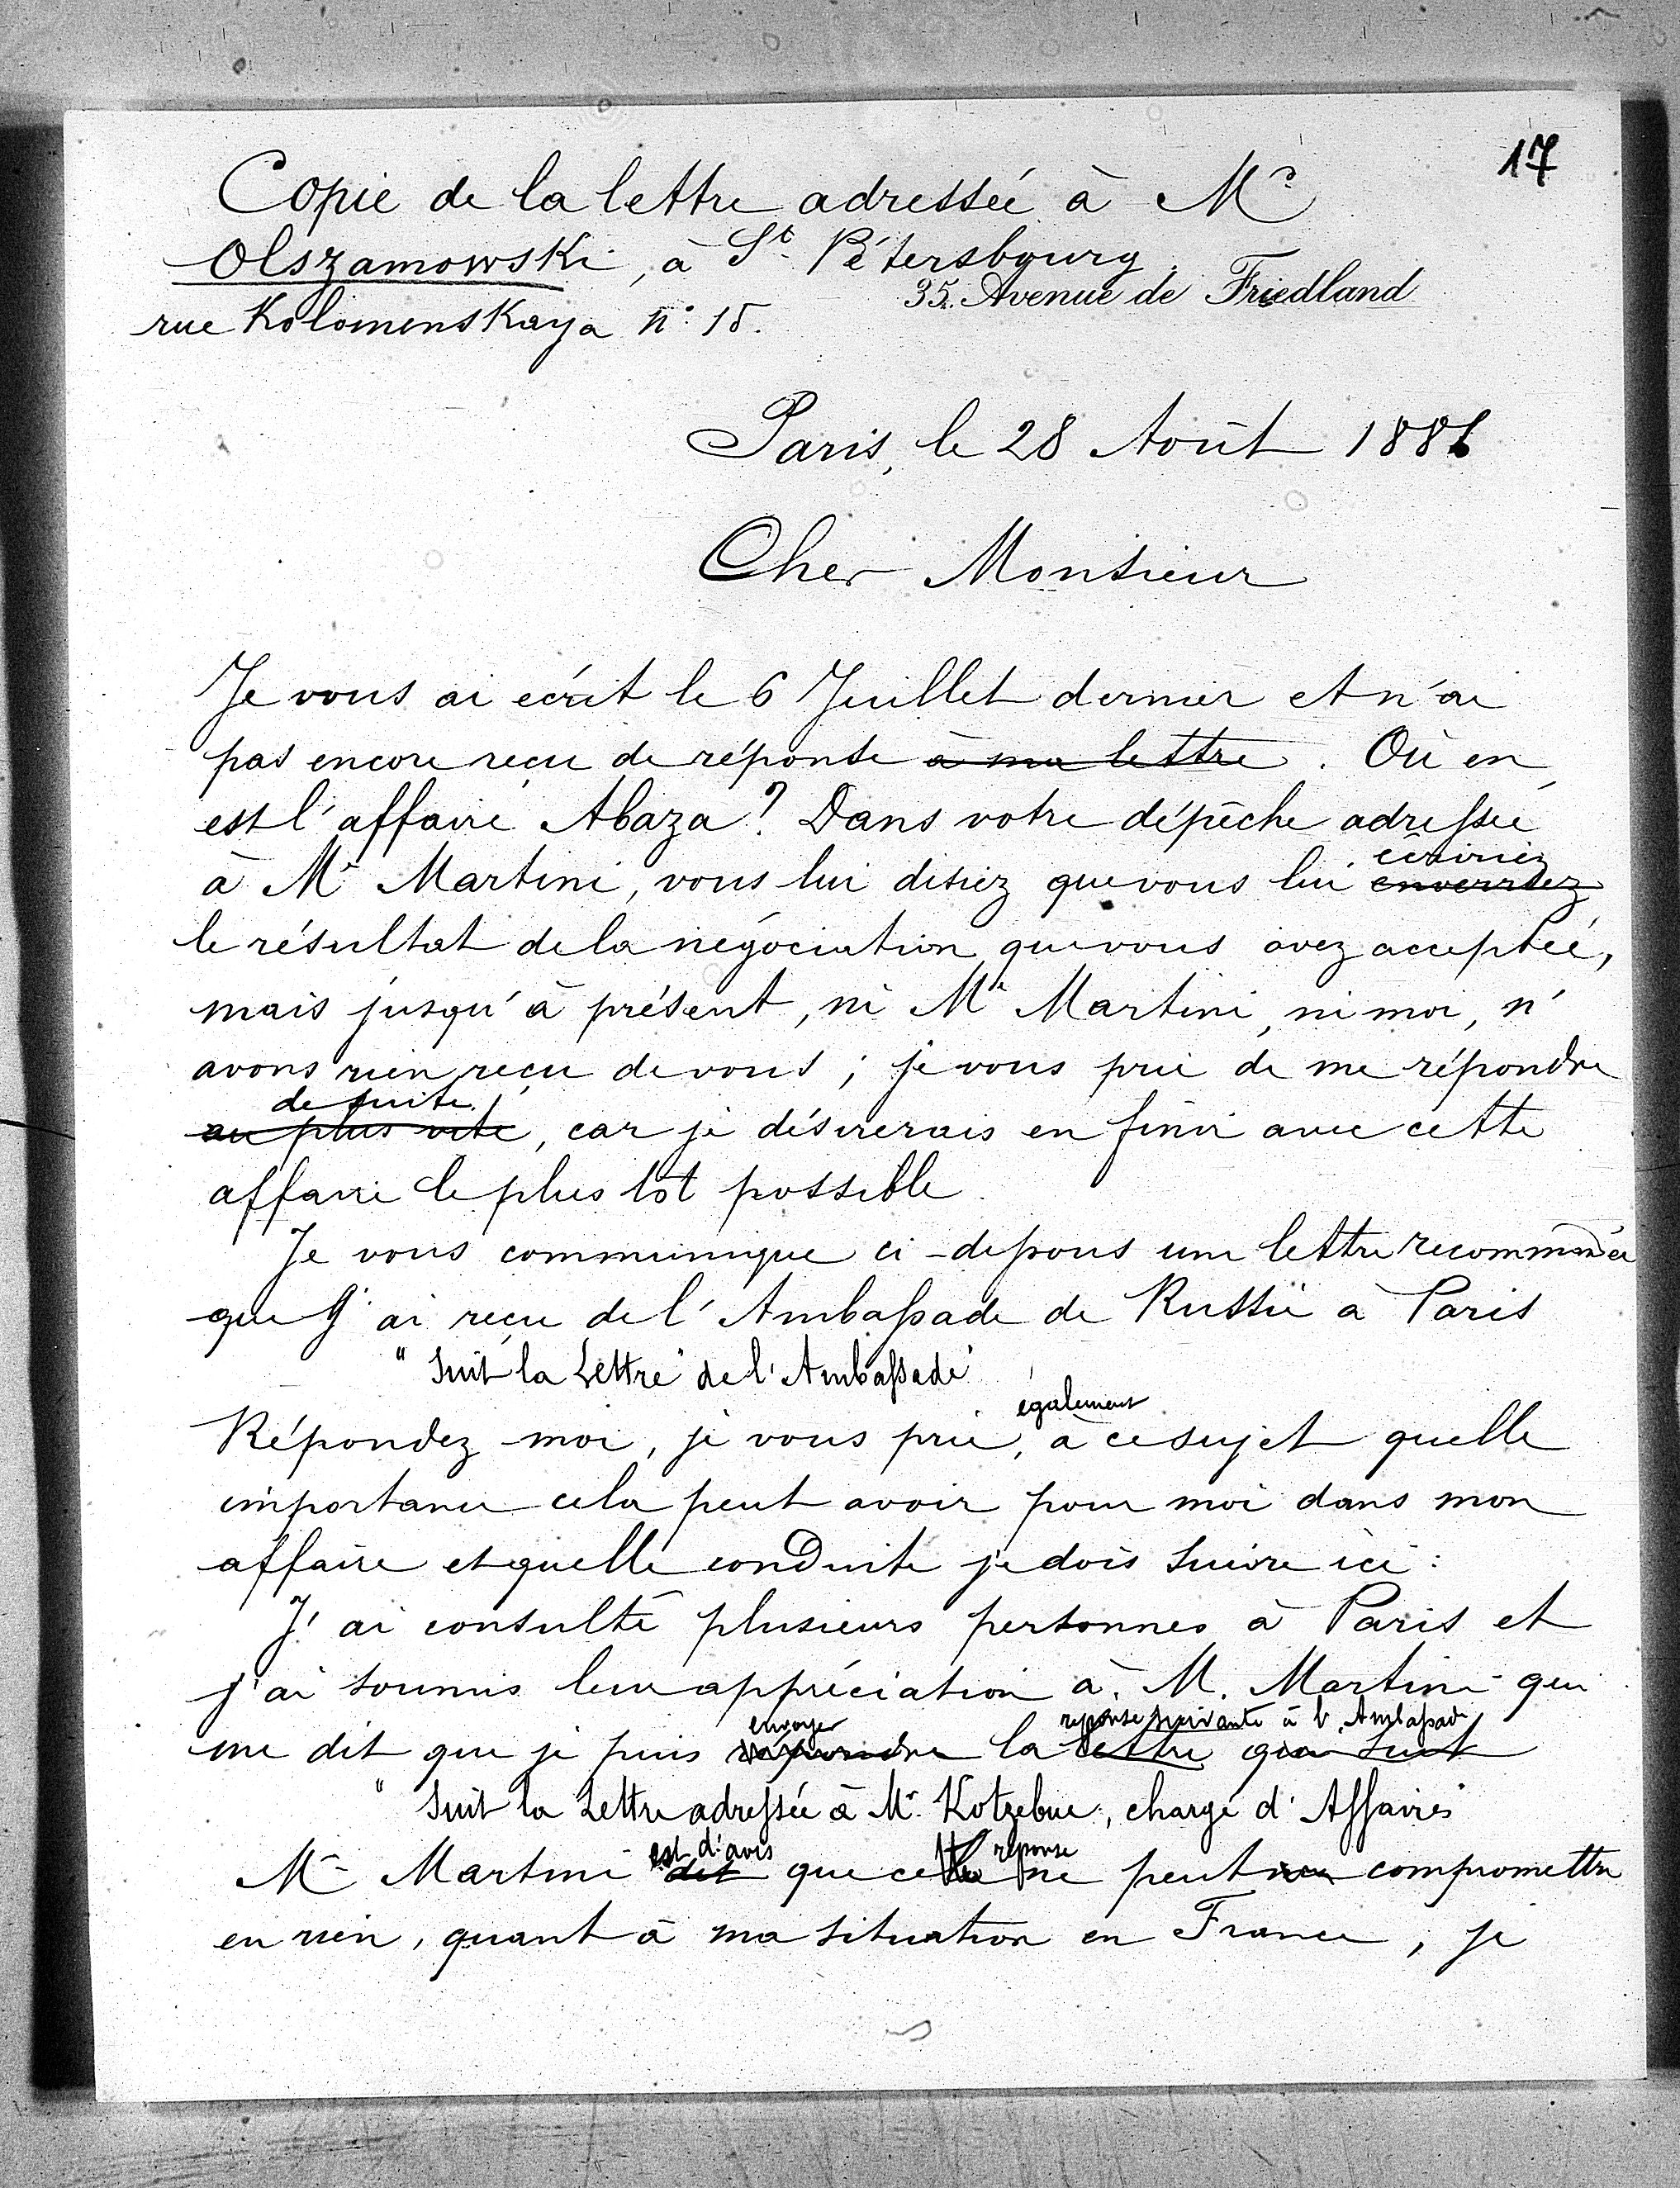 17
Copie de la lettre adressée à Mr
Olszamowski, à St Pétersbourg
35. Avenue de Friedland
rue Kolomenskaya n° 15.
Paris, le 28 Août 1881
Cher Monsieur
Je vous ai écrit le 6 Juillet dernier et n'ai
pas encore reçu de réponse à ma lettre. Où en
est l'affaire Abaza? Dans votre dépêche adressée
écririez
à Mr Martini, vous lui disiez que vous lui enverriez
le résultat de la négociation que vous avez acceptée,
mais jusqu'à présent, ni Mr Martini, ni moi, n'
avons rien reçu de vous; je vous prie de me répondre
de suite
au plus vite, car je désirerais en finir avec cette
affaire le plus tôt possible.
Je vous communique ci-dessous une lettre recommandée
que j'ai reçu de l'Ambassade de Russie à Paris
"Suit la Lettre de l'Ambassade"
également
Répondez-moi, je vous prie, à ce sujet quelle
importance cela peut avoir pour moi dans mon
affaire et quelle conduite je dois suivre ici:
J'ai consulté plusieurs personnes à Paris et
j'ai soumis leur appréciation à M. Martini qui
envoyer réponse suivante à l'Ambassade
me dit que je puis répondre la lettre qui suit
"Suit la Lettre adressée à Mr Kotzebue, chargé d'Affaires"
est d'avis réponse
Mr Martini dit que cette ne peut me compromettre
en rien, quant à ma situation en France, je